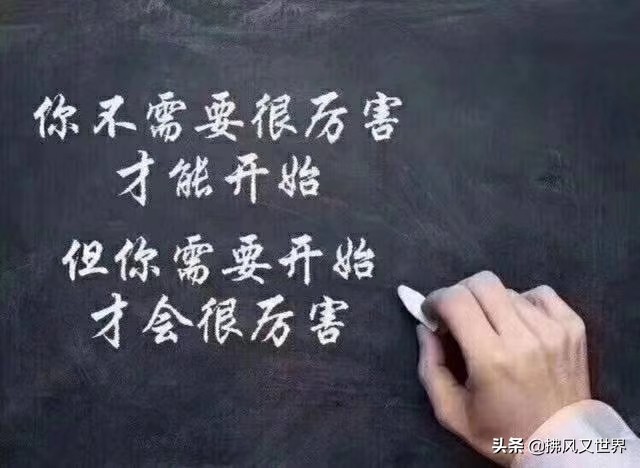 你不需要很厉害
才能开始
但你需要开始
才会很厉害
头条 @拂风又世界